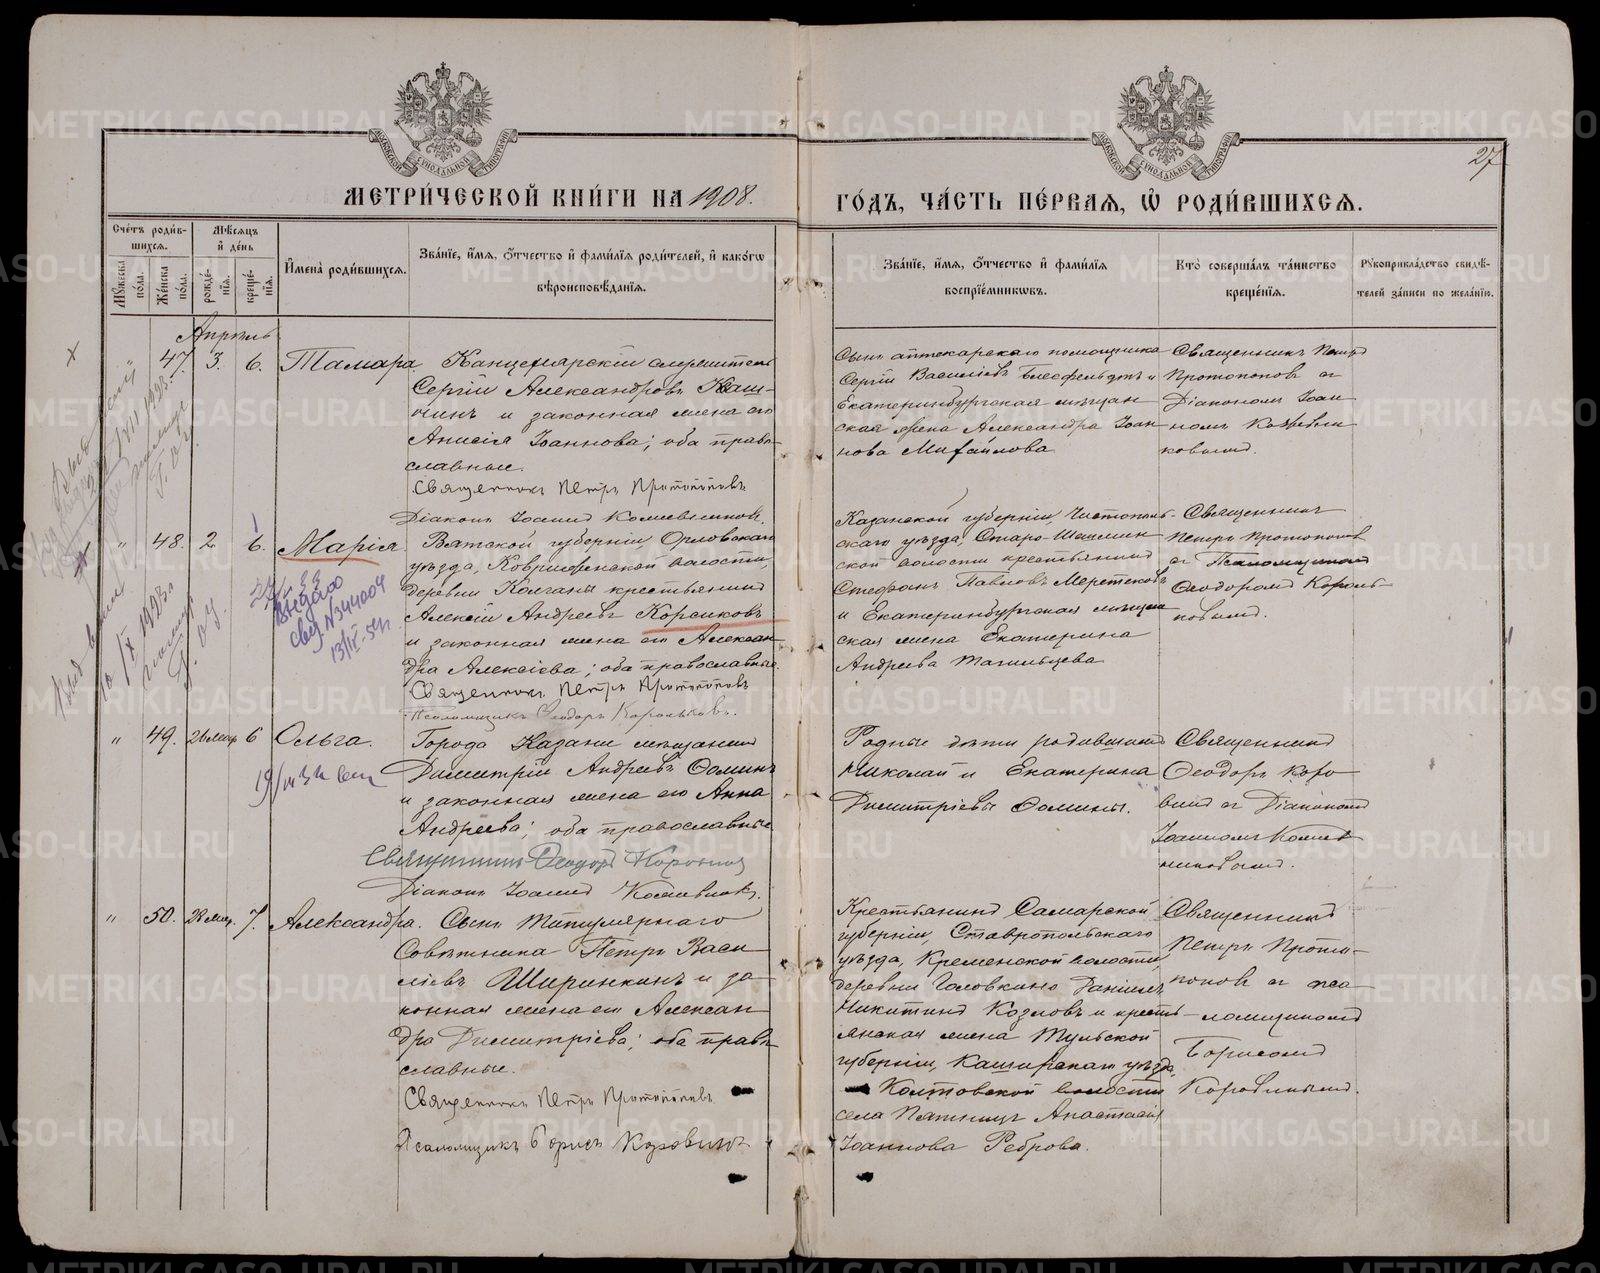 27
МЕТРИ́ЧЕСКОЙ КНИ́ГИ НА 1908.
ГО́ДЪ, ЧА́СТЬ ПЕ́РВАЯ, Ѡ҆ РОДИ́ВШИХСЯ.
Сче́тъ роди́вшихся.
Мꙋ́жеска по́ла.
Же́нска по́ла.
Мѣ́сяцъ и҆ де́нь
рожде́нїя.
креще́нїя.
И҆мена̀ роди́вшихся.
Зва́нїе, и҆́мя, ѻ҆́тчество и҆ фами́лїя роди́телей, и҆ како́гѡ
вѣроисповѣ́данїя.
Зва́нїе, и҆́мя, ѻ҆́тчество и҆ фами́лїя
воспрїе́мникѡвъ.
Кто̀ соверша́лъ та́инство
креще́нїя.
Рꙋкоприкла́дство свидѣ́телей за́писи по жела́нїю.
Апрѣль
" 47. 3. 6. Тамара
Канцелярскій служитель
Сергій Александровъ Каш-
чинъ и законная жена его
Анисія Іоаннова; оба право-
славные.
Священникъ Петръ Протопоповъ
Діаконъ Іоаннъ Кожевниковъ.
Сынъ аптекарскаго помощника
Сергій Василіевъ и
Екатеринбургская мѣщан
ская жена Александра Іоан
нова Михайлова
Священникъ Петръ
Протопоповъ съ
Діакономъ Іоан
номъ Кожевни
ковымъ.
" 48. 2 6. Марія
Вятской губерніи, Орловскаго
уѣзда, волости,
деревни крестьянинъ
Алексій Андреевъ Корсиковъ
и законная жена его Алексан
дра Алексіева; оба православные
Священникъ Петръ Протопоповъ
Псаломщикъ Ѳеодоръ Корольковъ.
Казанской губерніи, Чистополь-
скаго уѣзда, Старо-Шешмин
ской волости крестьянинъ
Стефанъ Павловъ
и Екатеринбургская мѣщан
ская жена Екатерина
Андреева Тагильцева
Священникъ
Петръ Протопоповъ
съ Псаломщикомъ
Ѳеодоромъ Король
ковымъ.
выдано
свид №344004
13/IV-54г
" 49. 26 Мар 6 Ольга.
Города Казани мѣщанинъ
Димитрій Андреевъ Ѳоминъ
и законная жена его Анна
Андреева; оба православные
Священникъ Ѳеодоръ Коровинъ
Діаконъ Іоаннъ Кожевниковъ.
Родные дѣти родившихъ
Николай и Екатерина
Димитріевы Ѳомины.
Священникъ
Ѳеодоръ Коро
винъ съ Діакономъ
Іоанномъ Кожев
никовымъ.
" 50. 28 Мар. 7. Александра.
Сынъ Титулярнаго
Совѣтника Петръ Васи
ліевъ Ширинкинъ и за-
конная жена его Алексан
дра Димитріева; оба право
славные.
Священникъ Петръ Протопоповъ
Псаломщикъ Борисъ Коровинъ
Крестьянинъ Самарской
губерніи, Ставропольскаго
уѣзда, Кременской волости,
деревни Головкино Даніилъ
Никитинъ Козловъ и кресть-
янская жена Тульской
губерніи, Каширскаго уѣзда,
Колтовской волости
села Пятницъ Анастасія
Іоаннова Реброва.
Священникъ
Петръ Прото-
поповъ съ пса-
ломщикомъ
Борисомъ
Коровинымъ.
METRIKI.GASO-URAL.RU